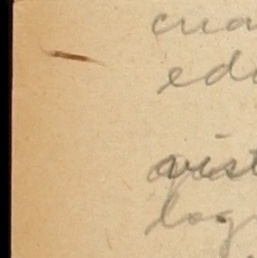 cua
edu
vist
log